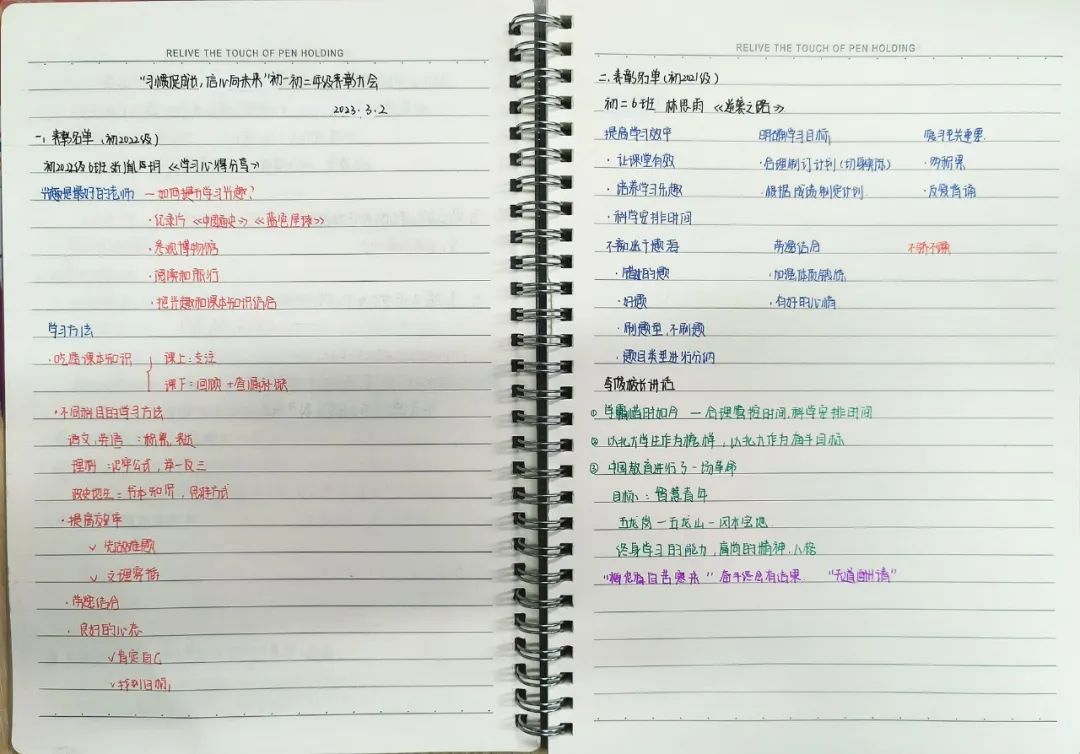 RELIVE THE TOUCH OF PEN HOLDING
"习惯促成长,信心向未来"初一初二年级表彰大会
2023.3.2
一、表彰名单(初2022级)
初2022级6班 《学习心得分享》
兴趣是最好的老师 — 如何提升学习兴趣?
·纪录片《中国通史》《蓝色星球》
·参观博物馆
·阅读和旅行
·把兴趣和课本知识结合
学习方法
·吃透课本知识 课上:专注
课下:回顾+查漏补缺
·不同科目的学习方法
语文,英语:积累,表达
理科:记牢公式,举一反三
政史地生:书本知识,思维方式
·提高效率
✓先做难题
✓文理穿插
·劳逸结合
·良好的心态
✓肯定自己
✓找到目标
RELIVE THE TOUCH OF PEN HOLDING
二.表彰名单(初2021级)
初二6班 林思雨《逆袭之路》
提高学习效率 明确学习目标 复习至关重要
·让课堂有效 ·合理制订计划(切身实际) ·勿拖累
·培养学习乐趣 ·根据成绩制定计划 ·反复背诵
·科学安排时间
不刷出千题海 劳逸结合 不骄不躁
·错过的题 ·加强体质锻炼
·好题 ·有好的心情
·刷题型,不刷题
·题目类型进行分门
校长讲话
① 学霸惜时如今 — 合理掌控时间,科学安排时间
② 以北大学生作为榜样,以北大作为奋斗目标
③ 中国教育进行了一场革命
目标:智慧青年
五龙岗—五龙山—风水宝地
终身学习的能力,高尚的精神,人格
"梅花香自苦寒来" 奋斗终会有结果 "天道酬勤"